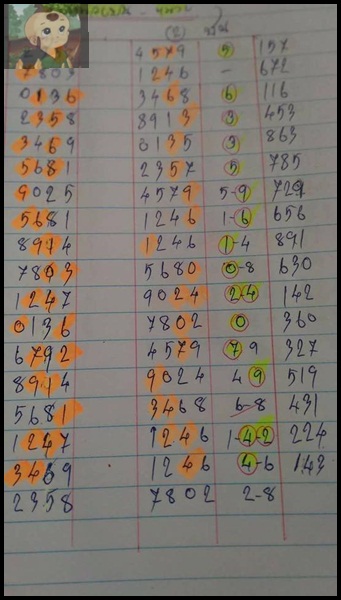 (2)
4579 5 157
7803 1246 - 672
0136 3468 6 116
2358 8913 3 453
3469 0135 3 863
5681 2357 5 785
9025 4579 5-9 729
5681 1246 1-6 656
8914 1246 1-4 891
7803 5680 0-8 630
1247 9024 2-4 142
0136 7802 0 360
6792 4579 79 327
8914 9024 49 519
5681 3468 6-8 431
1247 1246 1-4-2 224
3469 1246 4-6 143
2358 7802 2-8